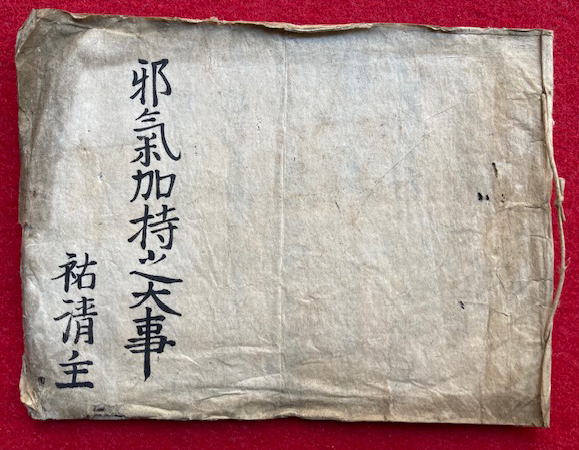 邪氣加持之大事
祐清主